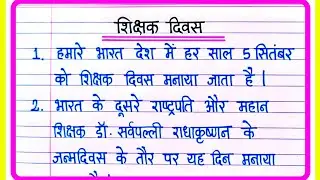 शिक्षक दिवस
1. हमारे भारत देश में हर साल 5 सितंबर
को शिक्षक दिवस मनाया जाता है।
2. भारत के दूसरे राष्ट्रपति और महान
शिक्षक डॉ. सर्वपल्ली राधाकृष्णन के
जन्मदिवस के तौर पर यह दिन मनाया